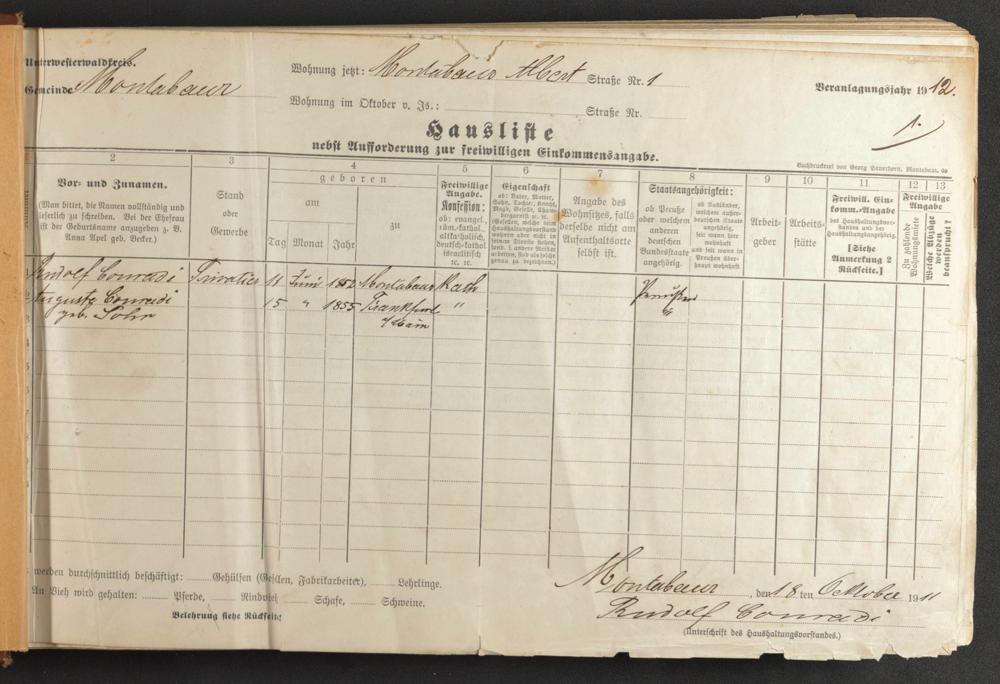 Unterwesterwaldkreis.
Gemeinde Montabaur
Wohnung jetzt: Montabaur Albert Straße Nr. 1
Wohnung im Oktober v. Js.: Straße Nr.
Veranlagungsjahr 1912.
1.
Hausliste
nebst Aufforderung zur freiwilligen Einkommensangabe.
Buchdruckerei von Georg Sauerborn, Montabaur.
2 3 4 5 6 7 8 9 10 11 12 13
Vor- und Zunamen.
(Man bittet, die Namen vollständig und
leserlich zu schreiben. Bei der Ehefrau
ist der Geburtsname anzugeben z. B.
Anna Apel geb. Becker.)
Stand
oder
Gewerbe
geboren
am
zu
Tag Monat Jahr
Freiwillige
Angabe.
Konfession:
ob: evangel.,
röm.-kathol.
altkathol.,
deutsch-kathol.
israelitisch
ꝛc. ꝛc.
Eigenschaft
ob: Vater, Mutter,
Sohn, Tochter, Knecht,
Magd, Geselle,
(Gesellen, welche
wohnen oder nicht in
seinem Dienste stehen,
genau zu bezeichnen.)
Angabe des
Wohnsitzes, falls
derselbe nicht am
Aufenthaltsorte
selbst ist.
Staatsangehörigkeit:
ob Preuße
oder welchem
anderen
deutschen
Bundesstaate
angehörig.
ob Ausländer,
welchem außer-
deutschen Staate
angehörig,
seit wann hier
wohnhaft
und seit wann in
Preußen über-
haupt wohnhaft
Arbeit-
geber
Arbeits-
stätte
Freiwill. Ein-
komm.-Angabe
des Haushaltungsvor-
standes und der
Haushaltungsangehörig.
[Siehe
Anmerkung 2
Rückseite.]
Freiwillige
Angabe
Zu zahlende
Wohnungsmiete
Welche Abzüge
werden
beansprucht?
Rudolf Conradi 11 Juni 1852 Montabaur Kath Preußen
Augusta Conradi 15 " 1855 Frankfurt " "
geb. Sohn a/Main
werden durchschnittlich beschäftigt: Gehülfen (Gesellen, Fabrikarbeiter), Lehrlinge.
An Vieh wird gehalten: Pferde, Rindvieh, Schafe, Schweine.
Belehrung siehe Rückseite
Montabaur, den 18 ten Oktober 1911
Rudolf Conradi
(Unterschrift des Haushaltungsvorstandes.)